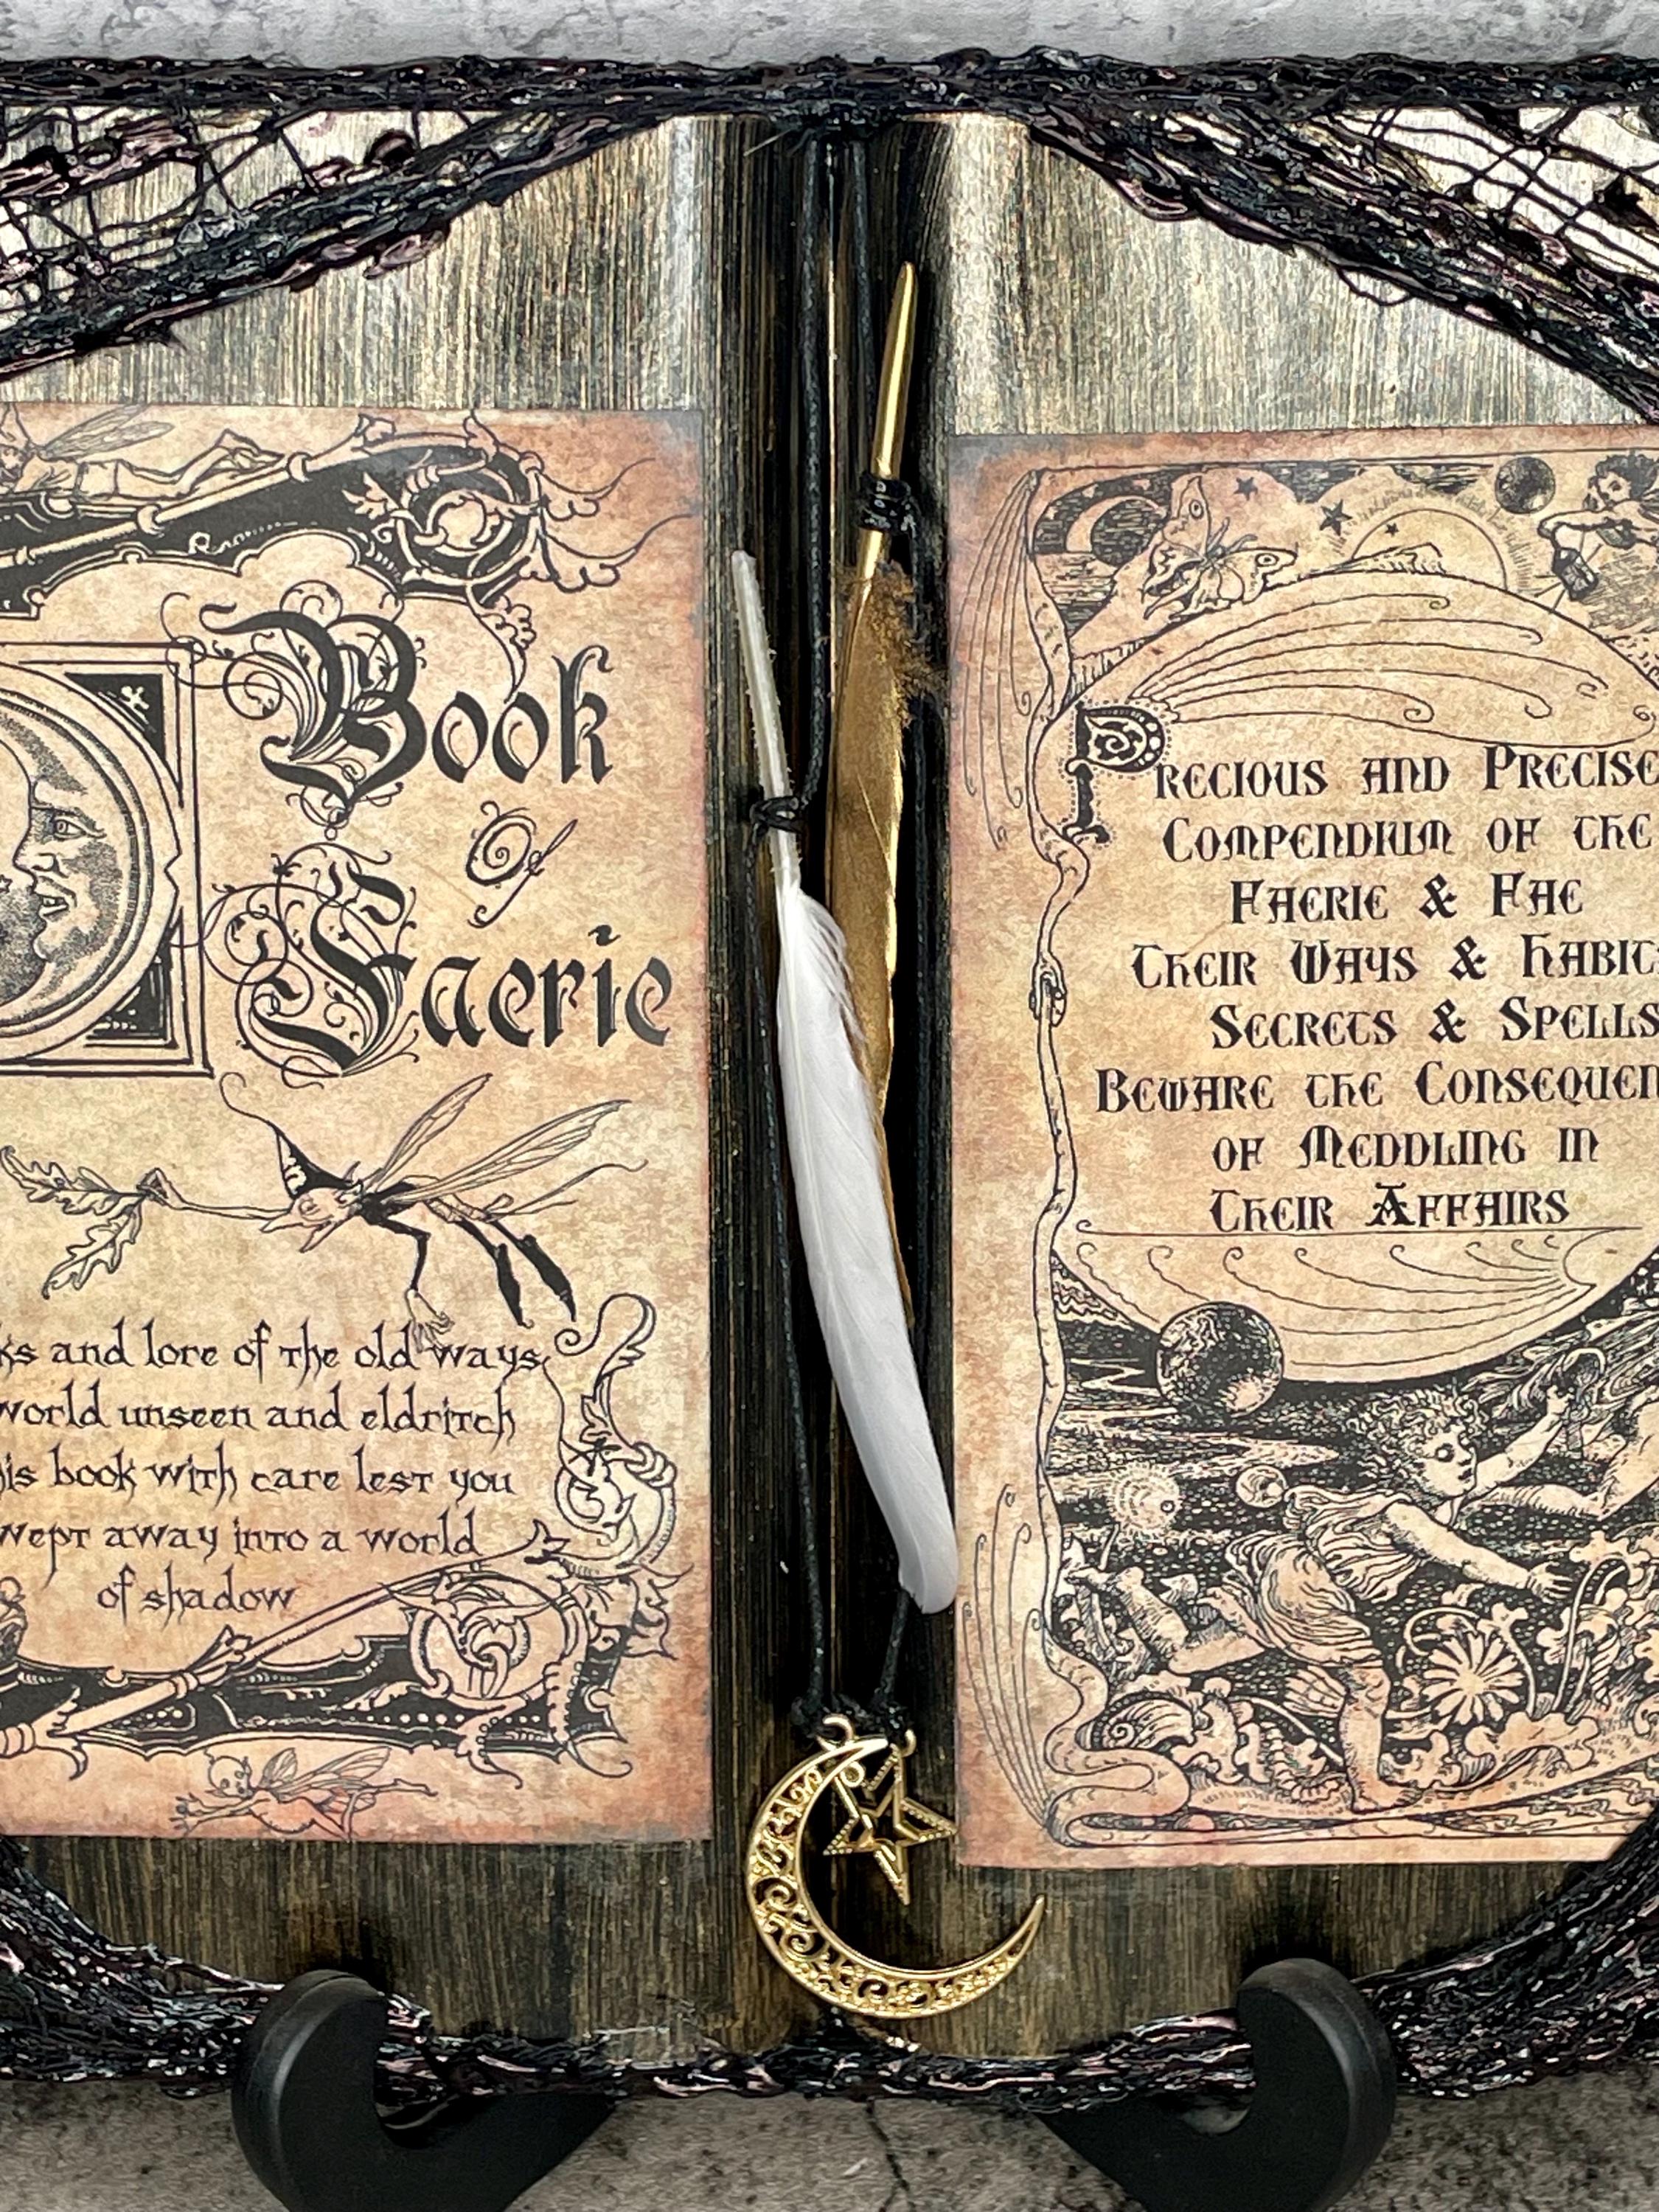 Book
of
Faerie
and lore of the old ways,
world unseen and eldritch
book with care lest you
away into a world
of shadow
Precious and Precise
Compendium of the
Faerie & Fae
Their Ways & Habits
Secrets & Spells
Beware the Consequen
of Meddling in
Their Affairs